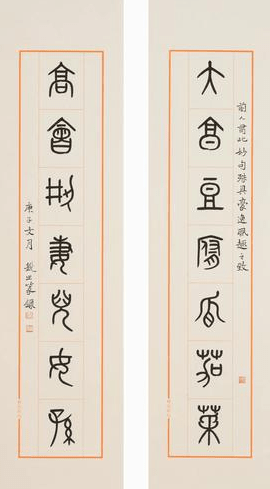 前人有此妙句殊具豪逸風趣之致
大亯豆腐瓜茄菜
高會荊妻兒女孫
庚子 月 篆